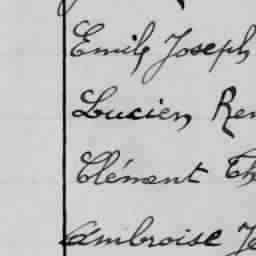 Emile Joseph
Lucien Ren
Clément Th
Ambroise Je